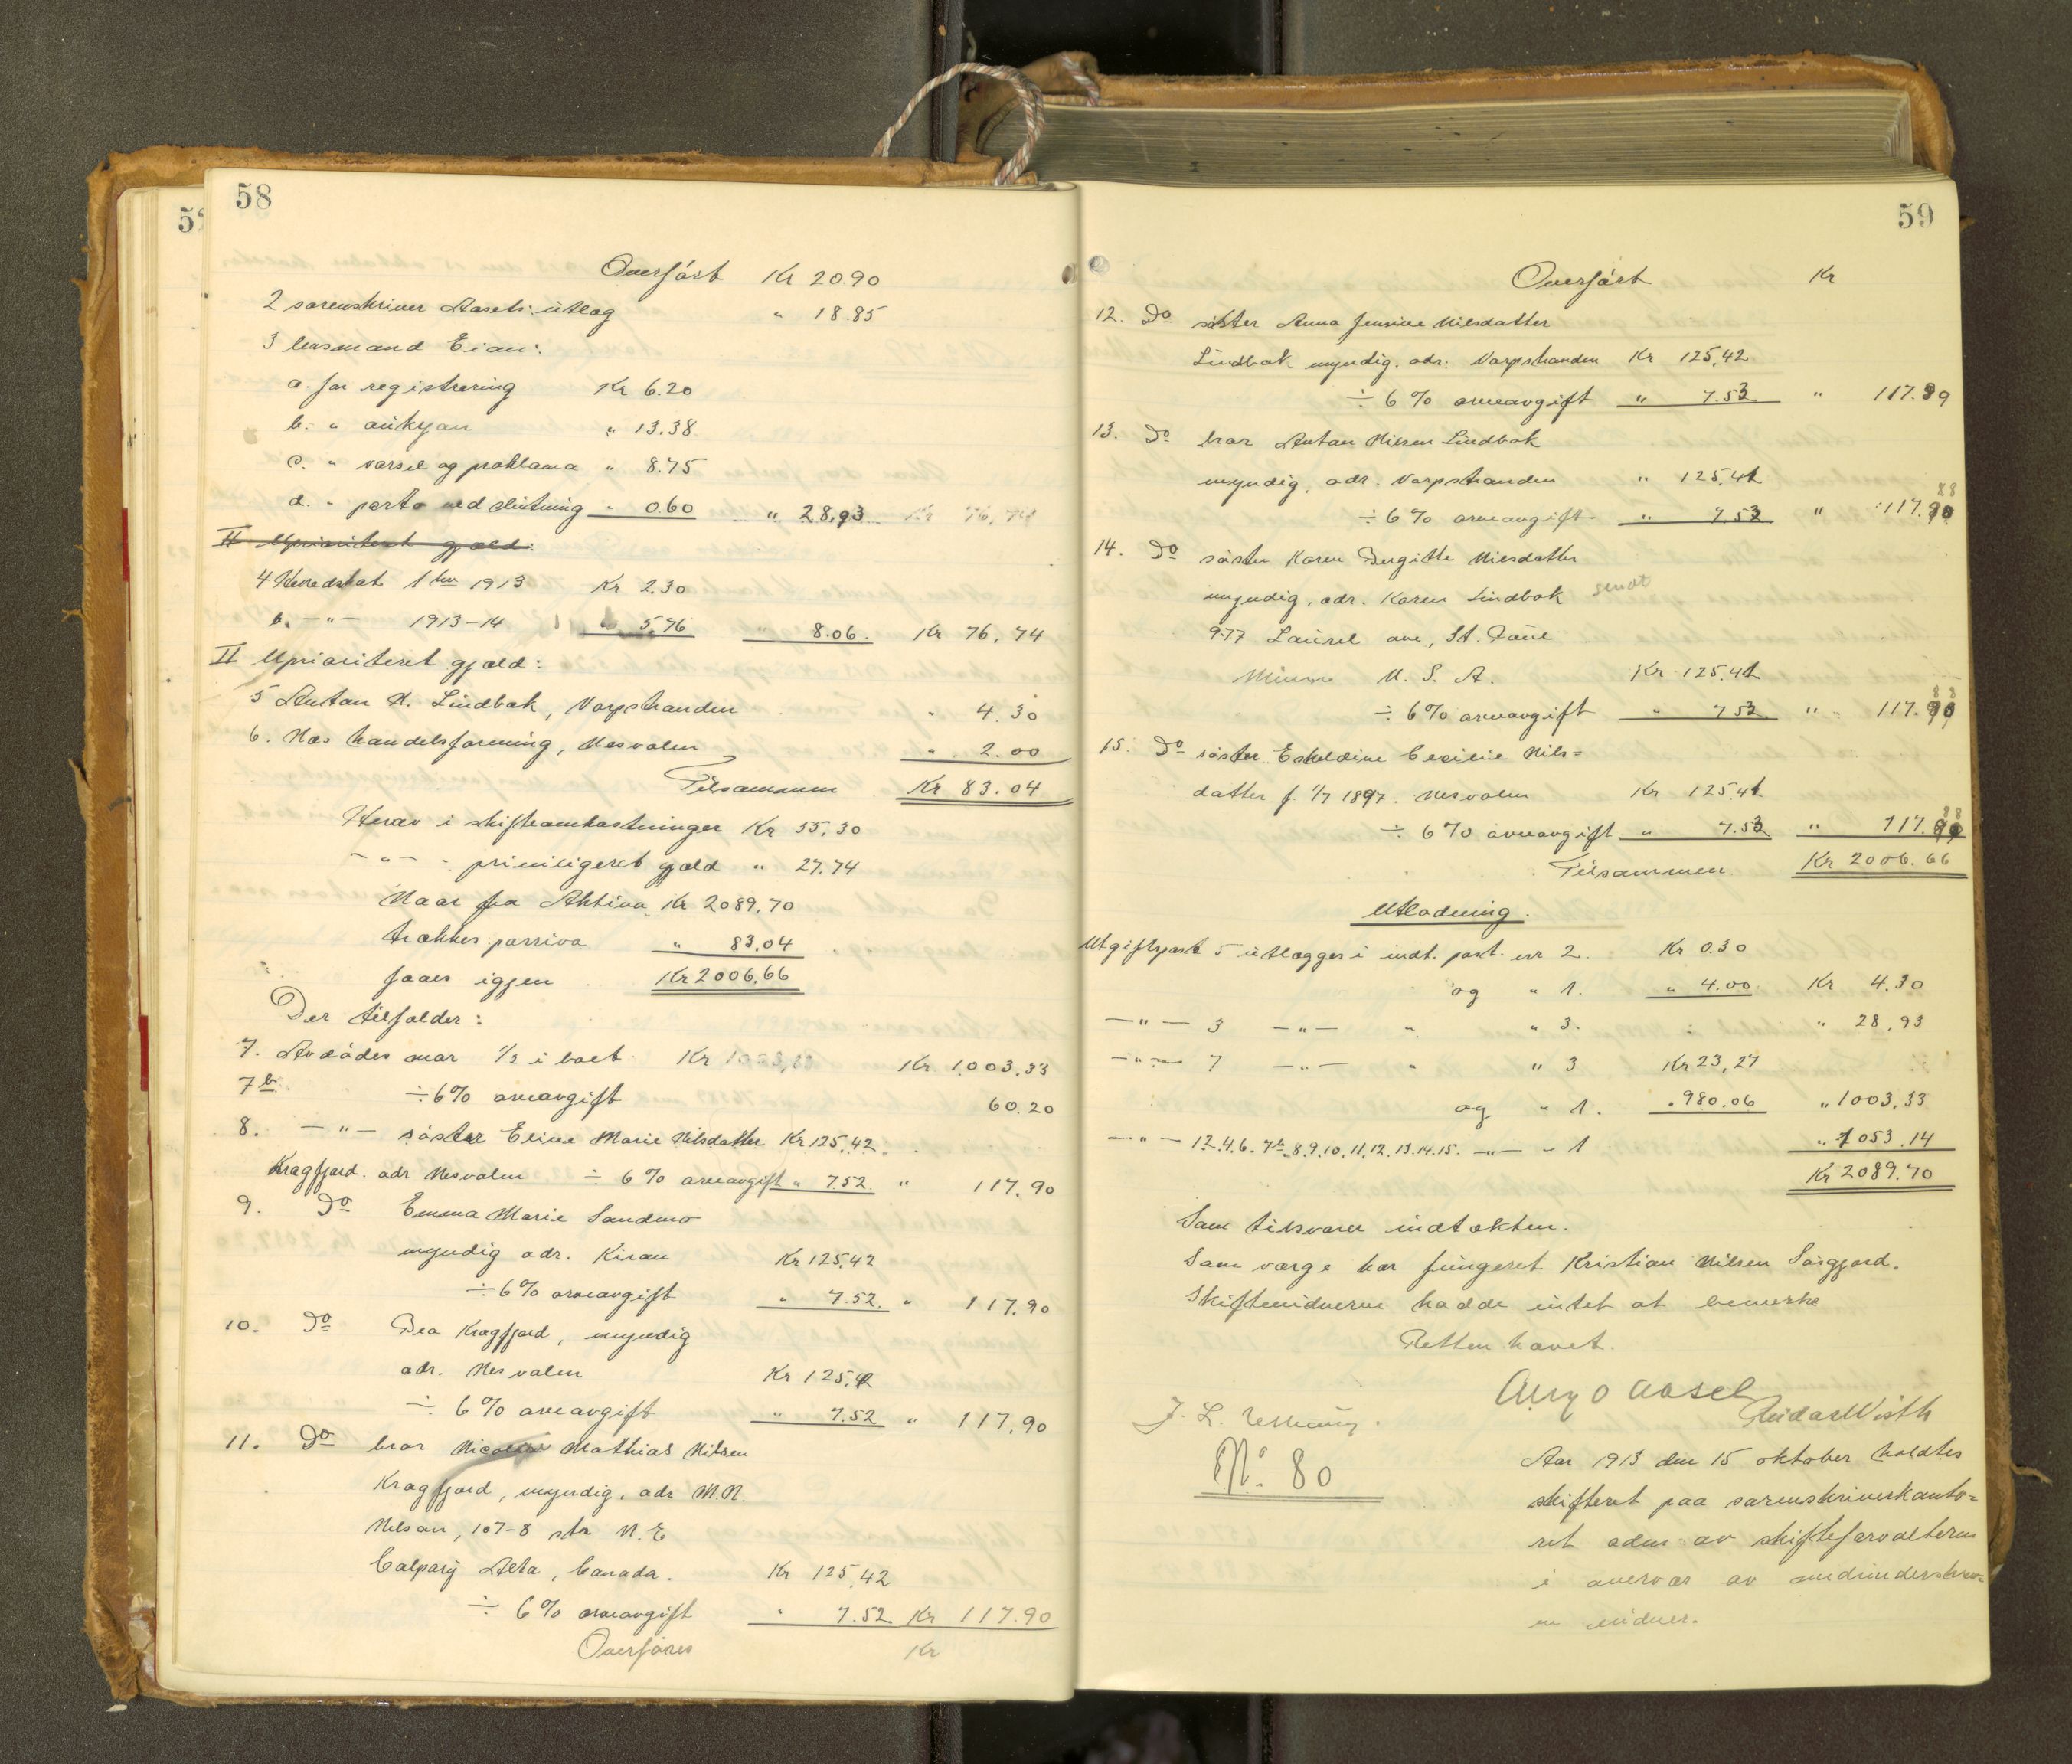 58
Overført Kr 20.90
2 sorenskriver Aasels utlæg " 18.85
3 lensmand Eian:
a. for registrering Kr 6.20
b. " auksjon " 13.38
c. " varsel og proklama " 8.75
d. " porto ved slutning " 0.60 " 28,93 Kr 76,74
II Uprioritert gjæld:
4 Heredskat 1 1913 Kr 2.30
b. —"— 1913-14 " 5,76 " 8.06. Kr 76,74
II Uprioriteret gjæld:
5 Anton N. Lindbak, Vorpstranden " 4.30
6. Nes handelsforening, Nesvalen " 2.00
Tilsammen Kr 83.04
Herav i skifteomkostninger Kr 55,30
—"— " priviligeret gjæld " 27.74
Naar fra Aktiva Kr 2089,70
trækkes passiva " 83,04
faaes igjen Kr 2006,66
Der tilfalder:
7. Avdødes mor 1/2 i boet Kr 1003,33 Kr 1003,33
7 b. ÷6% arveavgift 60.20
8. —"— søster Eline Marie Nilsdatter Kr 125,42
Kragfjord. adr Nesvalen ÷ 6% arveavgift " 7.52 " 117.90
9. Do Emma Marie Sandmo
myndig adr. Kiran Kr 125,42
÷6% arveavgift " 7.52. " 117.90
10. Do Bea Kragfjord, myndig
adr. Nesvalen Kr 125,42
÷ 6% arveavgift " 7.52 " 117.90
11. Do bror Nicolai Mathias Nilsen
Kragfjord, myndig, adr M.N.
Nelson, 107-8 str N.E
Calpary Alta, Canada. Kr 125,42
÷ 6% arveavgift " 7.52 Kr 117.90
Overføres Kr
59
Overført Kr
12. Do søster Anna Jensine Nilsdatter
Lindbak myndig. adr: Vorpstranden Kr 125,42
÷ 6% arveavgift " 7.53 " 117.89
13. Do bror Anton Nilsen Lindbak
myndig, adr. Vorpstranden " 125,41
88
÷ 6% arveavgift " 7.53 " 117.90
14. Do søster Karen Bergitte Nilsdatter
myndig, adr. Karen Lindbak sendt
977 Laurel ave, St. Paul
Minn U.S.A. Kr 125,41
88
÷ 6% arveavgift " 7.53 " 117.90
15. Do søster Eskeldine Cecilie Nils=
datter f. 1/7 1897. Nesvalen Kr 125,41
88
÷ 6% arveavgift " 7.53 " 117.90
Tilsammen Kr 2006.66
Utlodning.
Utgiftspost 5 utlægges i indt. post. nr 2. Kr 0.30
og " 1. " 4.00 Kr 4.30
—"— 3 —"— " " 3. " 28,93
—"— 7 —"— " " 3 Kr 23,27
og " 1. " 980.06 " 1003,33
—"— 1.2.4.6. 7b. 8.9.10, 11,12.13.14.15. —"— " 1 " 1053.14
Kr 2089.70
Som tilsvarer indtækten.
Som verge har fungeret Kristian Nilsen Sørgjerd.
Skiftevidnerne hadde intet at bemerke
Retten hævet.
Augo Aasel
J. L. Reidar Wisth
No. 80
Aar 1913 den 15 oktober holdtes
skifteret paa sorenskriverkonto=
ret aden av skifteforvalteren
i overvær av medunderskrev=
ne vidner.